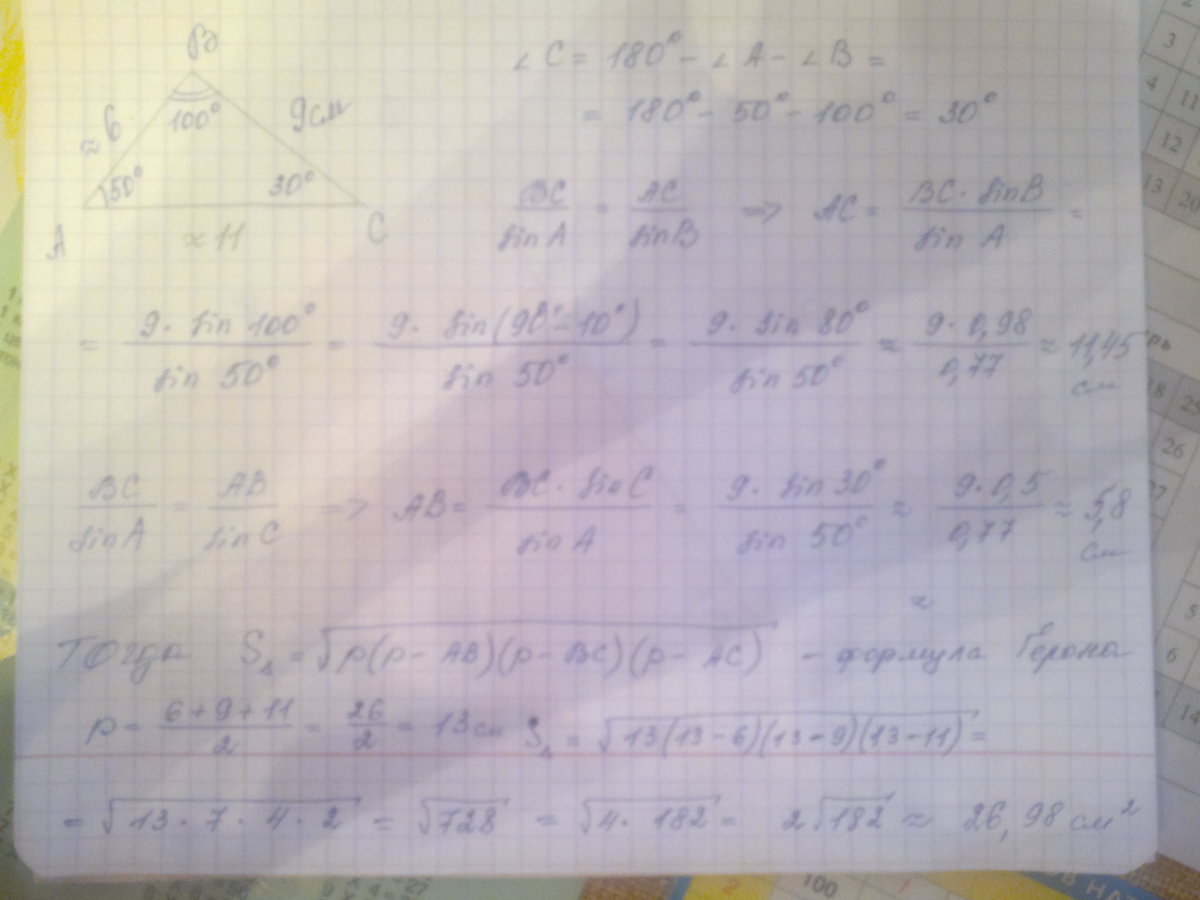 B
∠C = 180° - ∠A - ∠B =
= 180° - 50° - 100° = 30°
≈ 6
100°
9см
50°
30°
A
≈ 11
C
BC/sinA = AC/sinB => AC = BC · sinB/sin A =
= 9 · sin 100°/sin 50° = 9 · sin(90° - 10°)/sin 50° = 9 · sin 80°/sin 50° ≈ 9 · 0,98/0,77 ≈ 11,45 см
BC/sinA = AB/sinC => AB = BC · sinC/sinA = 9 · sin 30°/sin 50° ≈ 9 · 0,5/0,77 ≈ 5,8 см
≈
Тогда S△ = √p(p - AB)(p - BC)(p - AC) - формула Герона
p = 6+9+11/2 = 26/2 = 13 см S△ = √13(13-6)(13-9)(13-11) =
= √13 · 7 · 4 · 2 = √728 = √4 · 182 = 2√182 ≈ 26,98 см²
3
4
11
12
13
20
26
5
6
14
100